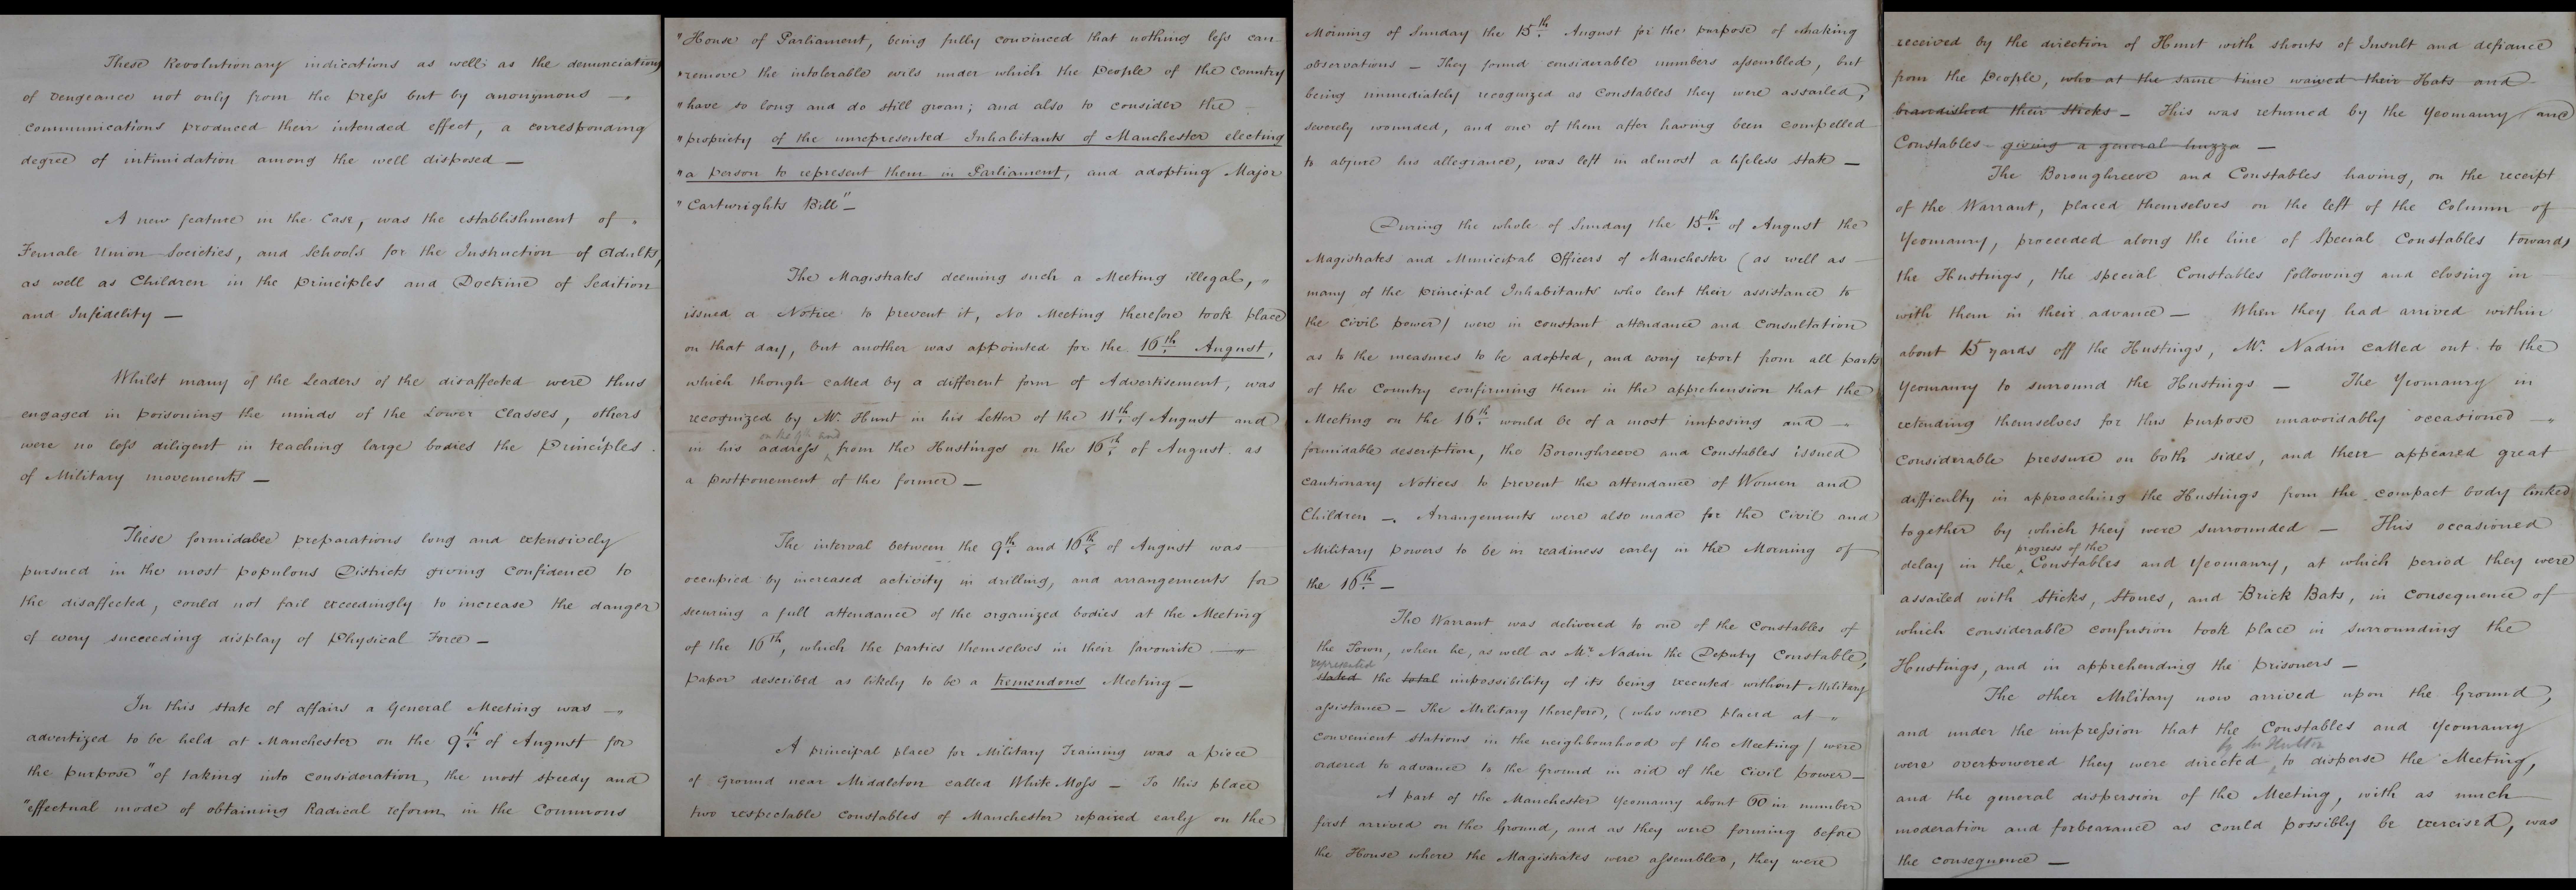 These Revolutionary indications as well as the denunciations
of vengeance not only from the press but by anonymous —"
communications produced their intended effect, a corresponding
degree of intimidation among the well disposed —
A new feature in the Case, was the establishment of "
Female Union Societies, and Schools for the Instruction of Adults,
as well as Children in the Principles and Doctrine of Sedition
and Infidelity —
Whilst many of the Leaders of the disaffected were thus
engaged in poisoning the minds of the Lower Classes, others
were no less diligent in teaching large bodies the Principles
of Military movements —
These formidable preparations long and extensively
pursued in the most populous Districts giving confidence to
the disaffected, could not fail exceedingly to increase the danger
of every succeeding display of Physical Force —
In this state of affairs a General Meeting was —"
advertized to be held at Manchester on the 9th of August for
the purpose "of taking into consideration, the most speedy and
"effectual mode of obtaining Radical reform in the Commons
"House of Parliament, being fully convinced that nothing less can
"remove the intolerable evils under which the People of the Country
"have so long and do still groan; and also to consider the
"propriety of the unrepresented Inhabitants of Manchester electing
"a person to represent them in Parliament, and adopting Major
"Cartwrights Bill" —
The Magistrates deeming such a Meeting illegal, "
issued a Notice to prevent it, No Meeting therefore took place
on that day, but another was appointed for the 16th August,
which though called by a different form of Advertisement, was
recognized by Mr. Hunt in his Letter of the 11th of August and
on the 9th and
in his address from the Hustings on the 16th of August as
a postponement of the former —
The interval between the 9th and 16th of August was
occupied by increased activity in drilling, and arrangements for
securing a full attendance of the organized bodies at the Meeting
of the 16th, which the parties themselves in their favourite —"
paper described as likely to be a tremendous Meeting —
A principal place for Military Training was a piece
of Ground near Middleton called White Moss — To this place
two respectable Constables of Manchester repaired early on the
Morning of Sunday the 15th August for the purpose of making
observations — They found considerable numbers assembled, but
being immediately recognized as Constables they were assailed,
severely wounded, and one of them after having been compelled
to abjure his allegiance, was left in almost a lifeless state —
During the whole of Sunday the 15th of August the
Magistrates and Municipal Officers of Manchester (as well as
many of the principal Inhabitants who lent their assistance to
the Civil power) were in constant attendance and consultation
as to the measures to be adopted, and every report from all parts
of the Country confirming them in the apprehension that the
Meeting on the 16th would be of a most imposing and —"
formidable description, the Boroughreeve and Constables issued
cautionary Notices to prevent the attendance of Women and
Children —. Arrangements were also made for the Civil and
Military powers to be in readiness early in the Morning of
the 16th —
The Warrant was delivered to one of the Constables of
the Town, when he, as well as Mr. Nadin the Deputy Constable,
represented
stated the total impossibility of its being executed without Military
assistance — The Military therefore, (who were placed at "
convenient stations in the neighbourhood of the Meeting) were
ordered to advance to the Ground in aid of the Civil power —
A part of the Manchester Yeomanry about 60 in number
first arrived on the Ground, and as they were forming before
the House where the Magistrates were assembled, they were
received by the direction of Hunt with shouts of Insult and defiance
from the People, who at the same time waived their Hats and
brandished their sticks — This was returned by the Yeomanry and
Constables giving a general huzza —
The Boroughreeve and Constables having, on the receipt
of the Warrant, placed themselves on the left of the Column of
Yeomanry, proceeded along the line of Special Constables towards
the Hustings, the special Constables following and closing in
with them in their advance — When they had arrived within
about 15 yards off the Hustings, Mr. Nadin called out to the
Yeomanry to surround the Hustings — The Yeomanry in
extending themselves for this purpose unavoidably occasioned —"
considerable pressure on both sides, and there appeared great
difficulty in approaching the Hustings from the compact body linked
together by which they were surrounded — This occasioned
progress of the
delay in the Constables and Yeomanry, at which period they were
assailed with Sticks, Stones, and Brick Bats, in consequence of
which considerable confusion took place in surrounding the
Hustings, and in apprehending the prisoners —
The other Military now arrived upon the Ground,
and under the impression that the Constables and Yeomanry
by Mr Hulton
were overpowered they were directed to disperse the Meeting,
and the general dispersion of the Meeting, with as much
moderation and forbearance as could possibly be exercised, was
the consequence —